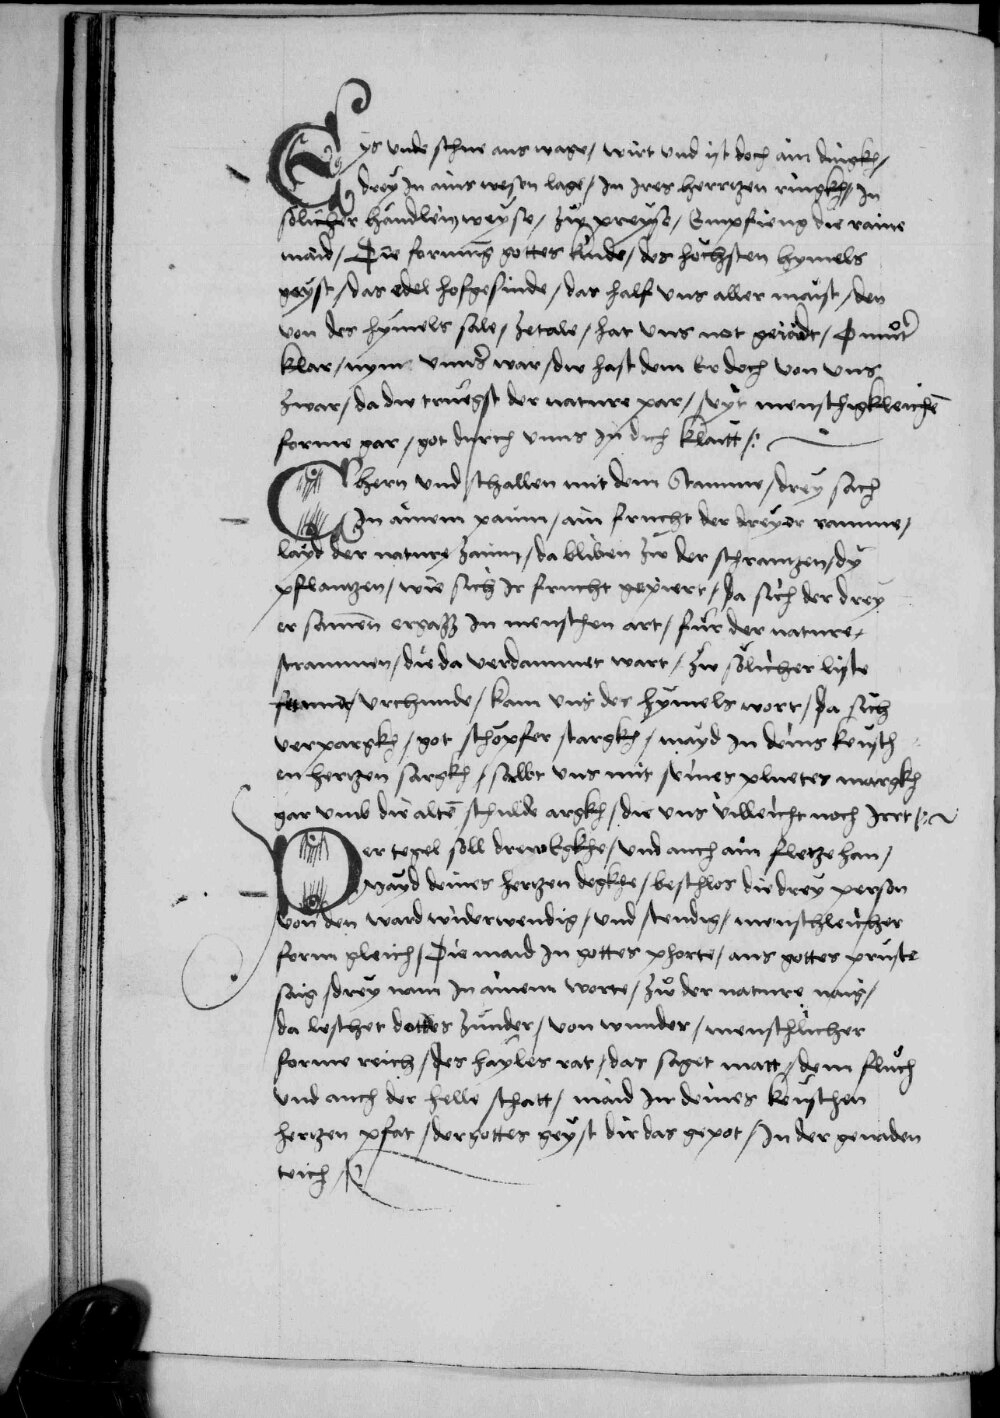 Eys vnde schne aus wage / wirt vnd ist doch ain dingkh /
drey In ains wesen lage / In Ires herrtzen ringkh / In
sölicher händlein weyse / zw preyse / Empfieng die raine
maid / Die formung gottes kinde / des höchsten hymels
geyst / das edel hofgesinde / das half vns aller maist / den
von des hymels sale / zetale / hat vns not geiadt / O muter
klar / nym vnnser war / dw hast dem Er doch von vns
zwar / da dw truegst der nature par / seyt menschigkleichen
forme gar / got durch vnns In dich klaitt /
hern vnd schallen mit dem Stamme / drey sach
In ainem paum / ain frucht der dreyer ramme /
layd der nature zaum / da bliben zw der schrantzen / dy
pflantzen / wie sich Ir frucht gepiert / Da sich der drey
er samen ergass In menschen art / für der nature
strammen / die da verdammet wart / zw sölicher liste
vrchunde / kam vns des hymels wort / Da sich
verpargkh / got schöpfer stargkh / mayd In deins keusch
en hertzen sargkh / salbt vns mit seines pluetes margkh
gar vmb die alten schulde argkh / die vns villeicht noch Irrt /
Der tegel soll drew Egkhe / vnd auch ain fletze han /
Mayd deines hertzen degkhe / beschlos die drey person
von den ward widerwendig / vnd stendig / menschleicher
form gleich / Die maid In gottes phorte / aus gottes pruste
saig / drey nam In ainem worte / zw der nature naig /
da leschet dottes zunder / von wunder / menschlicher
forme reich / des hayles rat / das saget matt / dem fluch
vnd auch der helle schatt / maid In deines keuschen
hertzen pfat / der gottes geyst dir das gepot / In der genaden
teich /